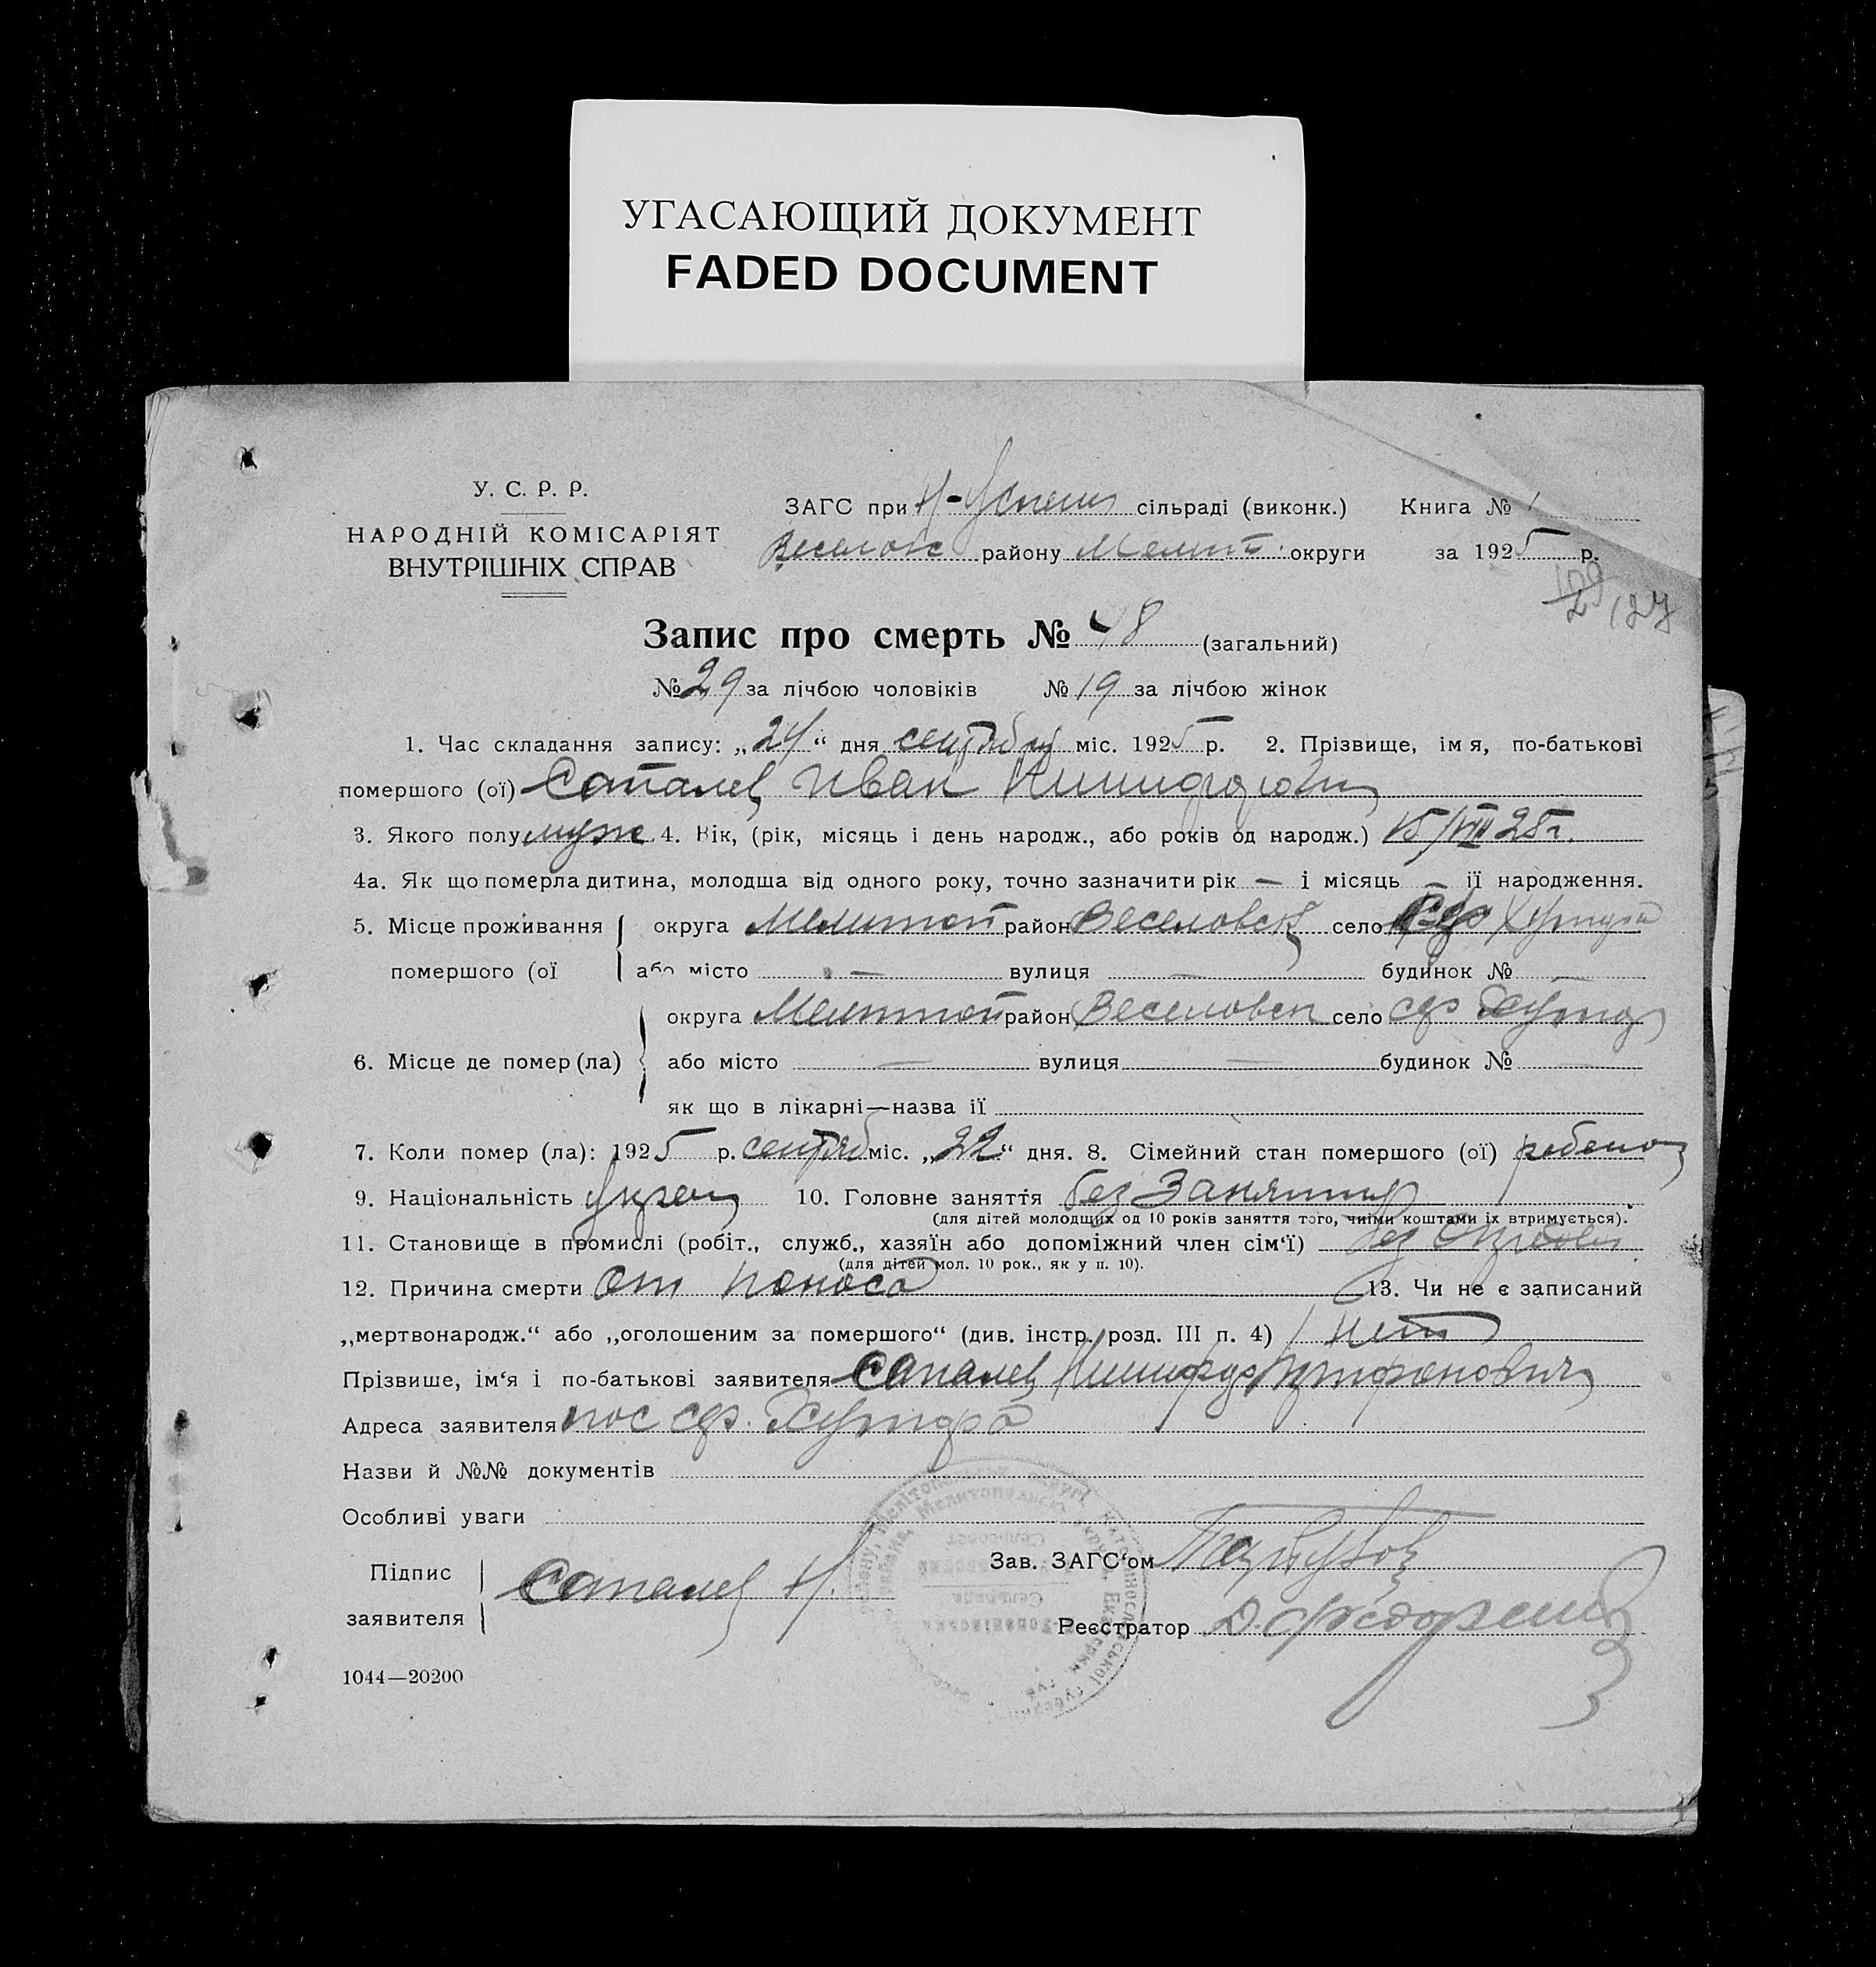 УГАСАЮЩИЙ ДОКУМЕНТ
FADED DOCUMENT
У. С. Р. Р.
НАРОДНІЙ КОМІСАРІЯТ
ВНУТРІШНІХ СПРАВ
ЗАГС при Н-Успен сільраді (виконк.) Книга № 1
Веселов району Мелит. округи за 1925 р.
127
Запис про смерть № 48 (загальний)
№ 29 за лічбою чоловіків № 19 за лічбою жінок
1. Час складання запису: „24“ дня сентября міс. 1925 р. 2. Прізвище, ім я, по-батькові
помершого (ої) Сапалец Иван
3. Якого полу муж 4. Вік, (рік, місяць і день народж., або років од народж.) 15/VIII 25 г.
4а. Як що померла дитина, молодша від одного року, точно зазначити рік — і місяць — її народження.
5. Місце проживання округа Мелитоп район Веселовск село
помершого (ої або місто — вулиця — будинок № —
округа Мелитоп район Веселовск село
6. Місце де помер (ла) або місто — вулиця — будинок № —
як що в лікарні—назва її
7. Коли помер (ла): 1925 р. сентяб міс. „22“ дня. 8. Сімейний стан помершого (ої) ребенок
9. Національність украин 10. Головне заняття без занятия
(для дітей молодщих од 10 років заняття того, чиїми коштами їх втримується).
11. Становище в промислі (робіт., служб., хазяїн або допоміжний член сім‘ї)
(для дітей мол. 10 рок., як у п. 10).
12. Причина смерти от поноса 13. Чи не є записаний
„мертвонародж.“ або „оголошеним за помершого“ (див. інстр. розд. III п. 4) нет
Прізвише, ім‘я і по-батькові заявителя Сапалец
Адреса заявителя пос
Назви й №№ документів
Особливі уваги
Підпис
заявителя Сапалец Н.
Зав. ЗАГС‘ом
Реєстратор
1044—20200